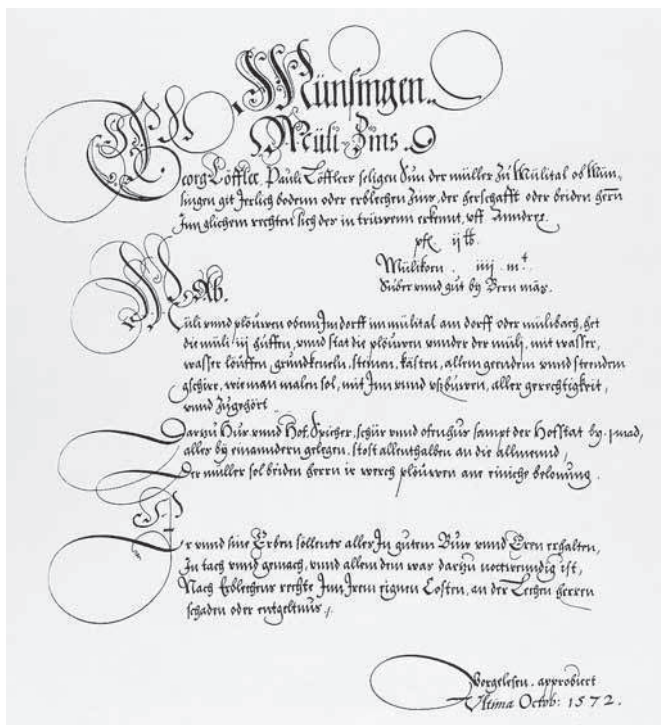 Münsingen.
Müli-Zins.
Georg Löffler, Pauli Löfflers seligen Sun der müller zu Mülital ob Mün-
singen git Jerlich bodenn oder erblechen Zins, der herschafft oder beiden herrn
Inn glichem rechten sich des in trüwenn erkennt, uff Anndres
pfe. ij lb.
Mülikorn. iiij m.
Suber vnnd gut by Bern mäs.
Ab.
Müli vnnd plöuwen obenn Im dorff im mülital am dorff oder mülibach, het
die müli iij hüffen, vnnd stat die plöuwen vnnder der müli, mit wasser,
wasser löuffen, grundkeneln, steinen, kästen, allem geendem vnnd stendem
gschirr, wie man malen sol, mit Inn vnnd vsbüwen, aller gerechtigkeit,
vnnd Zugehört.
Darzu Hus vnnd Hof, Spicher, schür vnnd ofenhus sampt der Hofstat by .j. mad,
alles by einanndern gelegen, stost allenthalben an die allmennd,
Der müller sol beiden herrn ir werch plöuwen ane einiche belonung.
Er vnnd sine Erben sollents alles In gutem Buw vnnd Eren erhalten,
In tach vnnd gemach, vnnd allem dem was darzu nottwenndig ist,
Nach Erblechens rechte Inn Irem eignen Costen, an der Lechen herren
schaden oder entgeltnus.
Vorgelesen, approbiert
Vltima Octob: 1572.